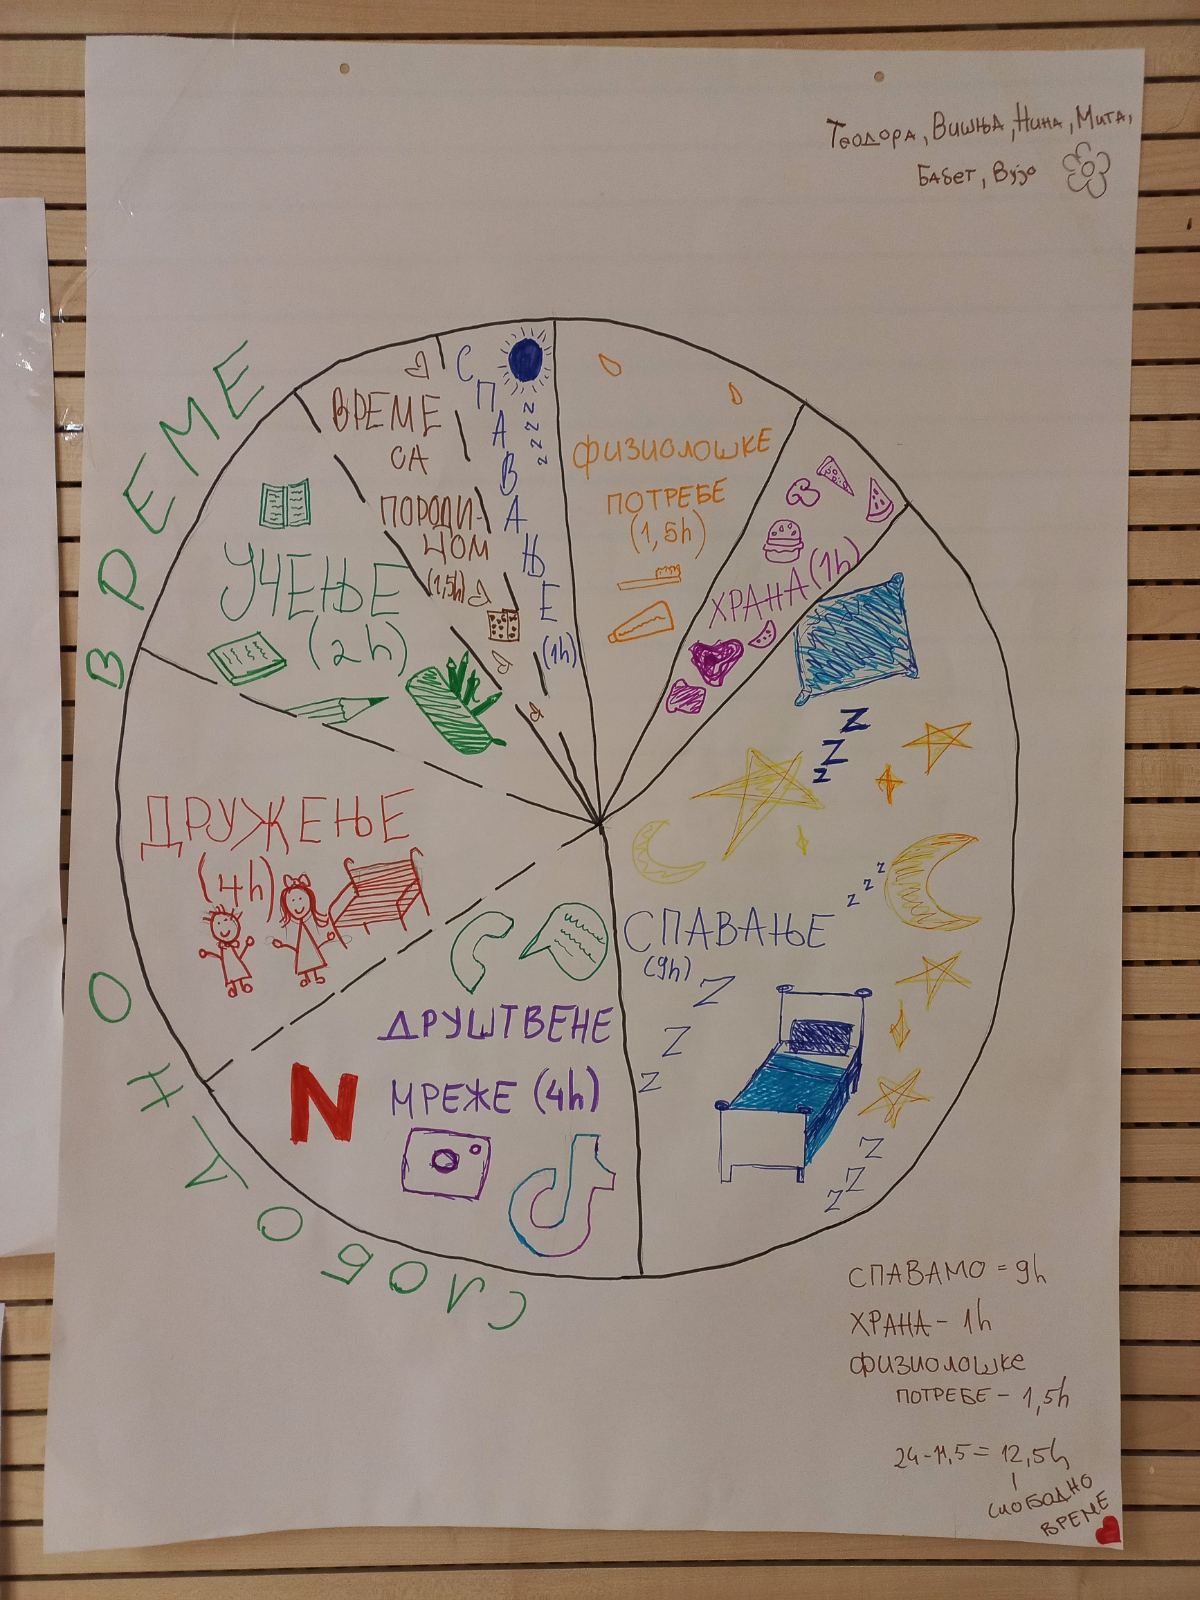 Теодора, Вишња, Нина, Мита,
Бабет, Вујо
СЛОБОДНО ВРЕМЕ
ВРЕМЕ
СА
ПОРОДИ-
ЦОМ
(1,5h)
СПАВАЊЕ
(1h)
zzzz
ФИЗИОЛОШКЕ
ПОТРЕБЕ
(1,5h)
ХРАНА (1h)
УЧЕЊЕ
(2h)
ДРУЖЕЊЕ
(4h)
Z
Z
Z
z z z
СПАВАЊЕ
(9h)
Z
Z
Z
ДРУШТВЕНЕ
МРЕЖЕ (4h)
N
Z
Z
Z
СПАВАМО = 9h
ХРАНА - 1h
ФИЗИОЛОШКЕ
ПОТРЕБЕ - 1,5h
24-11,5 = 12,5h
СЛОБОДНО
ВРЕМЕ